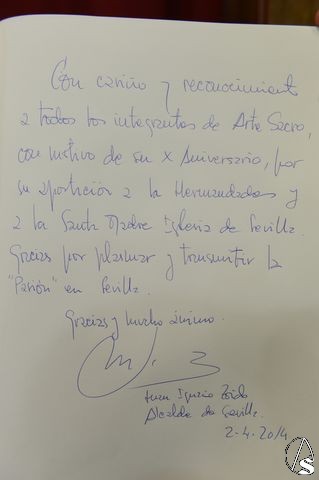 Con cariño y reconocimiento
a todos los integrantes de Arte Sacro,
con motivo de su X Aniversario, por
su aportación a la Hermandades y
a la Santa Madre Iglesia de Sevilla.
Gracias por plasmar y transmitir la
"Pasión" en Sevilla.
Gracias y mucho ánimo.
Juan Ignacio Zoido
Alcalde de Sevilla.
2-4-2014